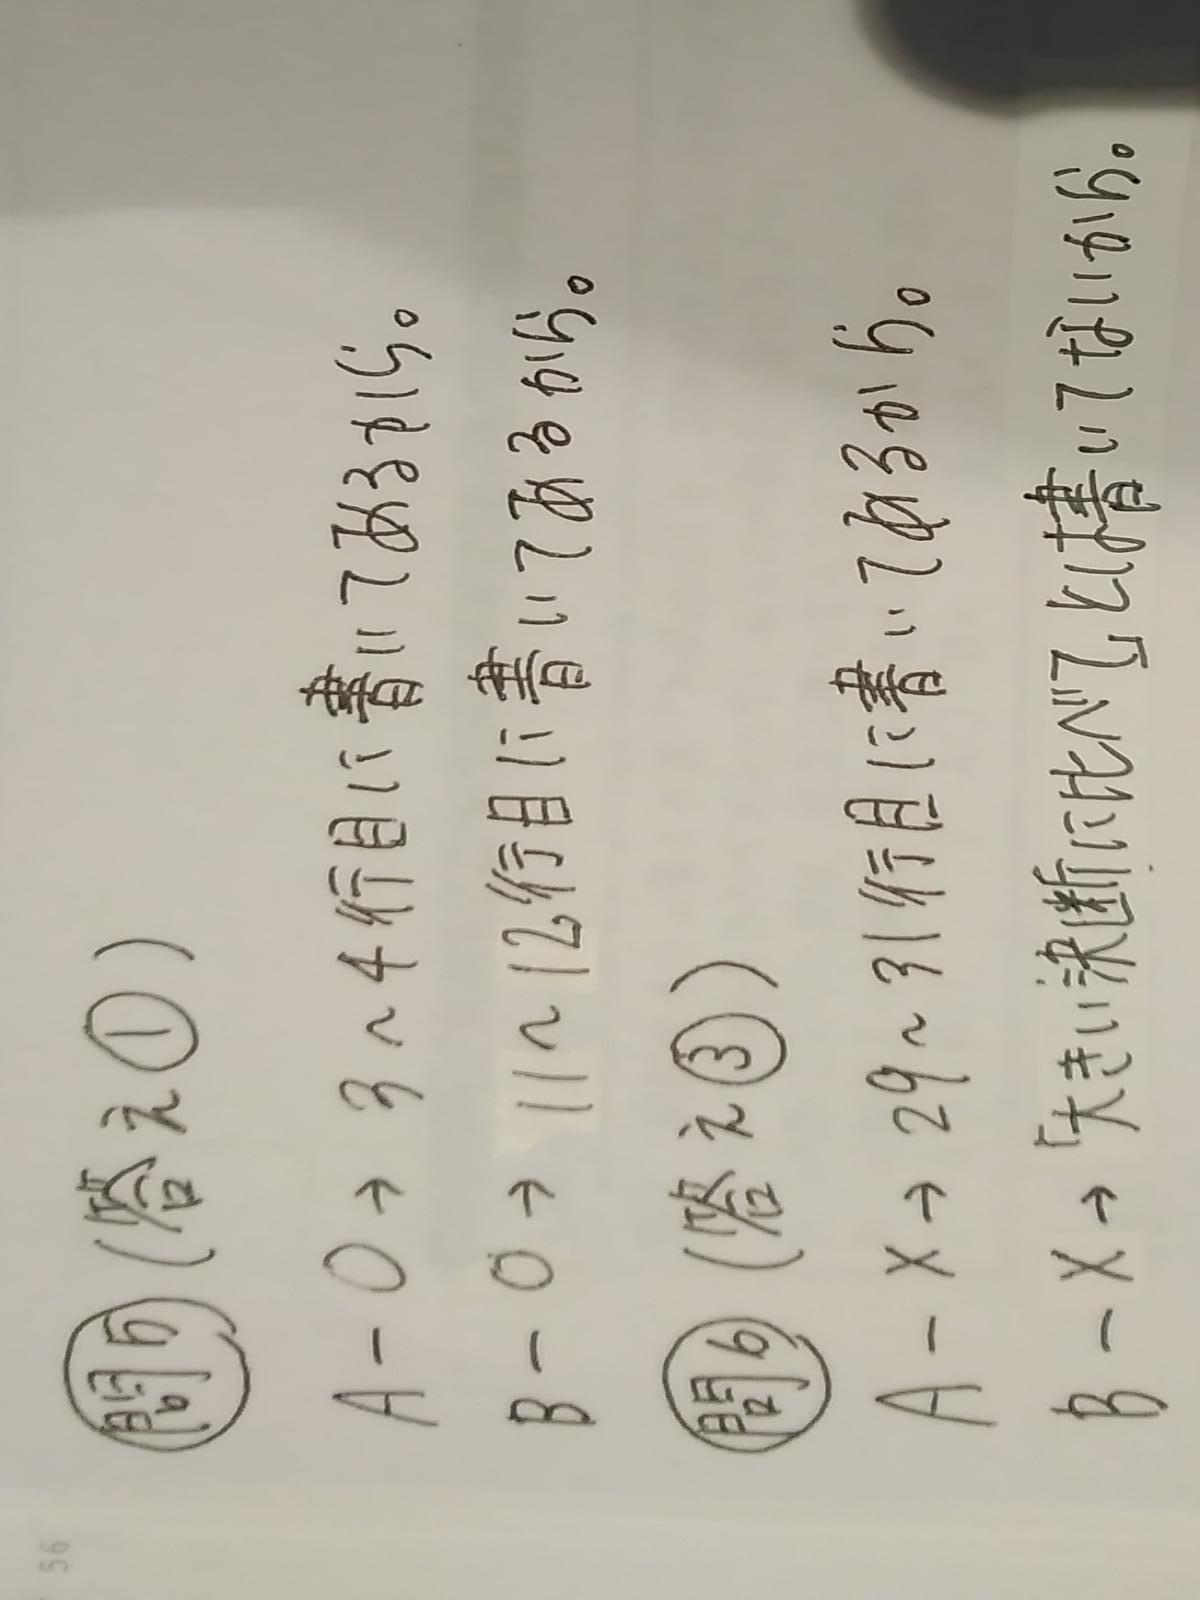 問5 (答え①)
A-○→3~4行目に書いてあるから。
B-○→11~12行目に書いてあるから。
問6 (答え③)
A-×→29~31行目に書いてあるから。
B-×→「大きい決断に比べて」とは書いてないから。
56